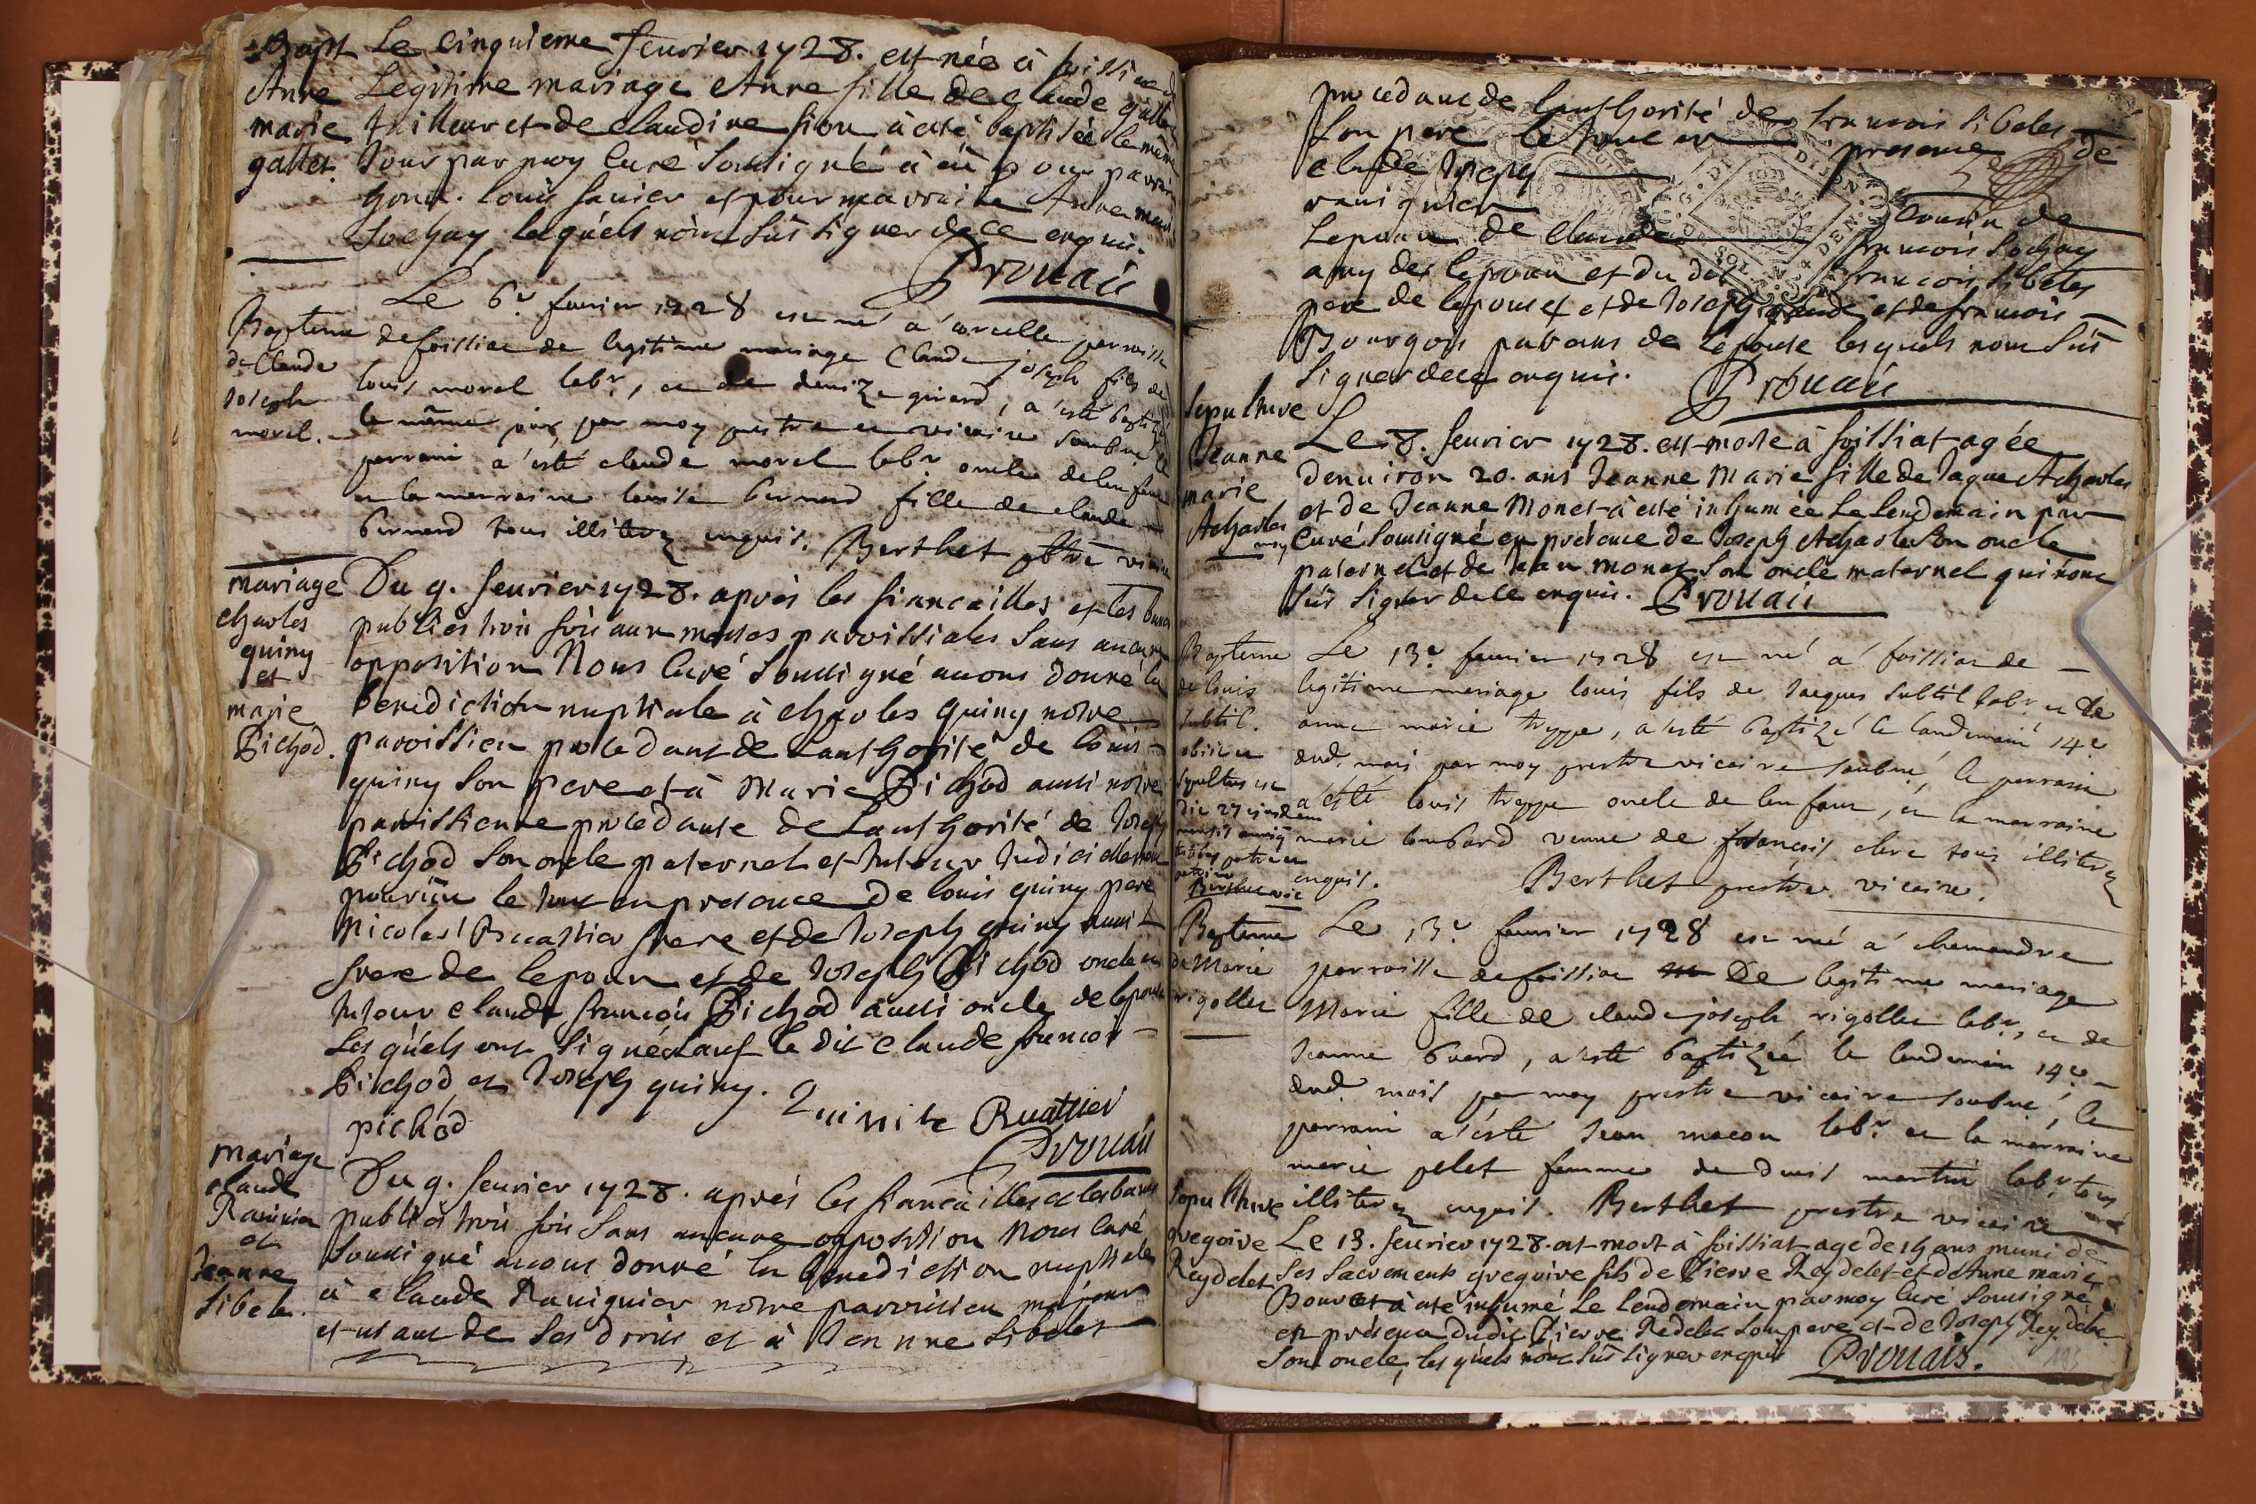 Bapt
Anne
marie
gallet.
Le cinquieme feurier 1728. est née à foissiac de
Legitime mariage Anne fille de claude gallet
tailleur et de claudine fion à esté baptisée le même
Jour par moy curé soussigné à eü pour parrain
honn. louis fauier et pour marraine Anne marie
Sochay lesquels nont sus signer de ce enquis.
Prouais
Baptême
de Claude
Joseph
morel.
Le 6e feurier 1728 est né a corcelle parroisse
de foissiac de legitime mariage Claude joseph fils de
louis morel labr, et de denize girard, a esté baptizé
le même jour par moy prestre et vicaire soubne le
parrain a esté claude morel labr oncle de lenfant
et la marraine louise bernard fille de claude
bernard tous illiterez enquis. Berthet pbtre vicaire
mariage
charles
quiny
et
marie
Pichod.
Du 9. feurier 1728. après les fiancailles et les bans
publiés trois fois aux messes parroissiales sans aucune
opposition Nous Curé soussigné auons donné la
benediction nuptiale à charles quiny notre
paroissien procedant de lauthorité de louis
quiny son pere et à Marie Pichod aussi notre
paroissienne procedante de Lauthorité de Joseph
Pichod son oncle paternel et tuteur
le tout en presence de louis quiny pere
Nicolas Ruattier frere et de Joseph quiny aussi
frere de lepoux et de Joseph Pichod oncle et
tuteur claude françois Pichod aussi oncle de lepouse
Lesquels ont signé sauf le dit claude françois
Pichod et Joseph quiny.
pichod
Ruattier
Prouais
mariage
claude
Rauinier
et
Jeanne
Sibelet.
Du 9. feurier 1728. aprés les fiancailles et les bans
publiés trois fois sans aucune opposition Nous Curé
soussigné auons donné la benediction nuptiale
à claude Rauiguier notre parroissien majeur
et usant de ses droits et à Jeanne Sibelet
procedant de lauthorité de francois Sibelet
son pere le tout en presence de
claude Joseph
rauiguier cousin de
Lepoux de Claude francois Sochay
amy de lepoux et du dit francois Sibelet
pere de lepouse et de Joseph et de francois
Bourgois parans de lepouse lesquels nont sus
signer de ce enquis. Prouais
Sepulture
Jeanne
marie
Acharles
Le 8. feurier 1728. est morte à foissiat agée
denuiron 20. ans Jeanne Marie fille de Jaque Acharles
et de Jeanne Monet à esté inhumée Le Lendemain par moy
Curé soussigné en présence de Joseph Acharles son oncle
paternel et de Jean monet son oncle maternel qui nont
sus signer de ce enquis. Prouais
Baptême
de louis
subtil.
obiit et
sepultus est
die 27 ejusdem
Berthet vic
Le 13e feurier 1728 est né a foissiat de
legitime mariage louis fils de Jacques subtil labr et de
anne marie treppe, a esté baptizé le landemain 14e
dud. mois par moy prestre vicaire soubne le parrain
a esté louis treppe oncle de lenfant, et la marraine
marie lombard veuue de francois clerc tous illiterez
enquis.
Berthet prestre vicaire.
Baptême
de Marie
rigollet
Le 13e feurier 1728 est né a chemandre
parroisse de foissiac De legitime mariage
Marie fille de claude joseph rigollet labr, et de
Jeanne buard, a esté baptizée le lendemain 14e
dud. mois par moy prestre vicaire soubné, le
parrain a esté Jean macon labr et la marraine
marie pelet femme de denis martin labr tous
illiterez enquis. Berthet prestre vicaire
Sepulture
gregoire
Reydelet
Le 13. feurier 1728. est mort à foissiat agé de 15 ans muni de
ses sacrements gregoire fils de Pierre Reydelet et de Anne marie
Bouvet à été inhumé Le Lendemain par moy Curé soussigné
en présence dudit Pierre Redelet son pere et de Joseph Reydelet
son oncle, les quels nont sus signer enquis Prouais.